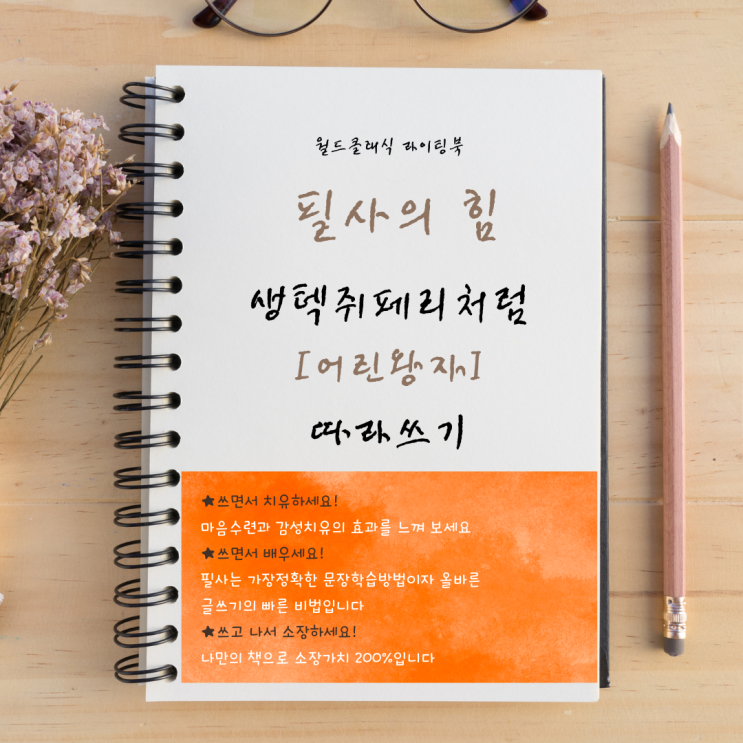 월드클래식 라이팅북
필사의 힘
생텍쥐페리처럼
[어린왕자]
따라쓰기
★쓰면서 치유하세요!
마음수련과 감성치유의 효과를 느껴 보세요
★쓰면서 배우세요!
필사는 가장정확한 문장학습방법이자 올바른
글쓰기의 빠른 비법입니다
★쓰고 나서 소장하세요!
나만의 책으로 소장가치 200%입니다